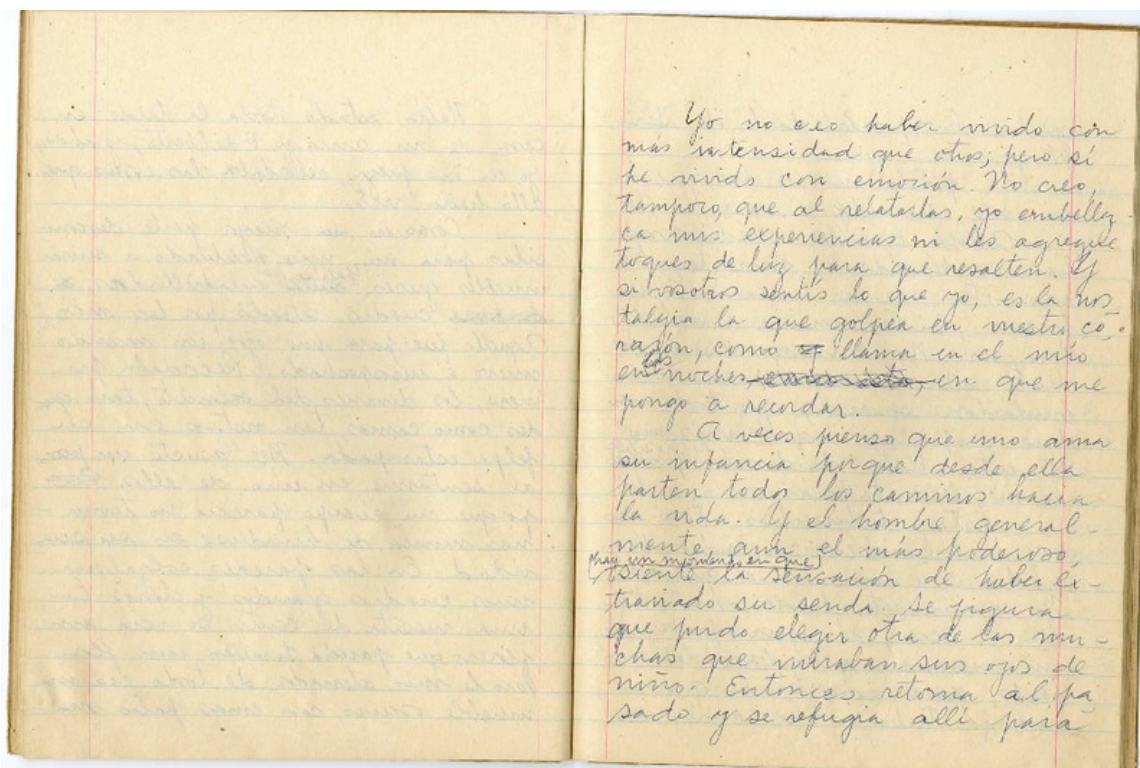 Yo no creo haber vivido con
más intensidad que otros; pero sí
he vivido con emoción. No creo,
tampoco, que al relatarlas, yo embellez-
ca mis experiencias ni les agregue
toques de luz para que resalten. Y
si vosotros sentís lo que yo, es la nos
talgia la que golpea en vuestro co-
razón, como llama en el mío
en las noches en que me
pongo a recordar.
A veces pienso que uno ama
su infancia porque desde ella
parten todos los caminos hacia
la vida. Y el hombre general-
mente, aun el más poderoso,
(hay un momento en que)
siente la sensación de haber ex-
traviado su senda. Se figura
que pudo elegir otra de las mu-
chas que miraban sus ojos de
niño. Entonces retorna al pa
sado y se refugia allí para